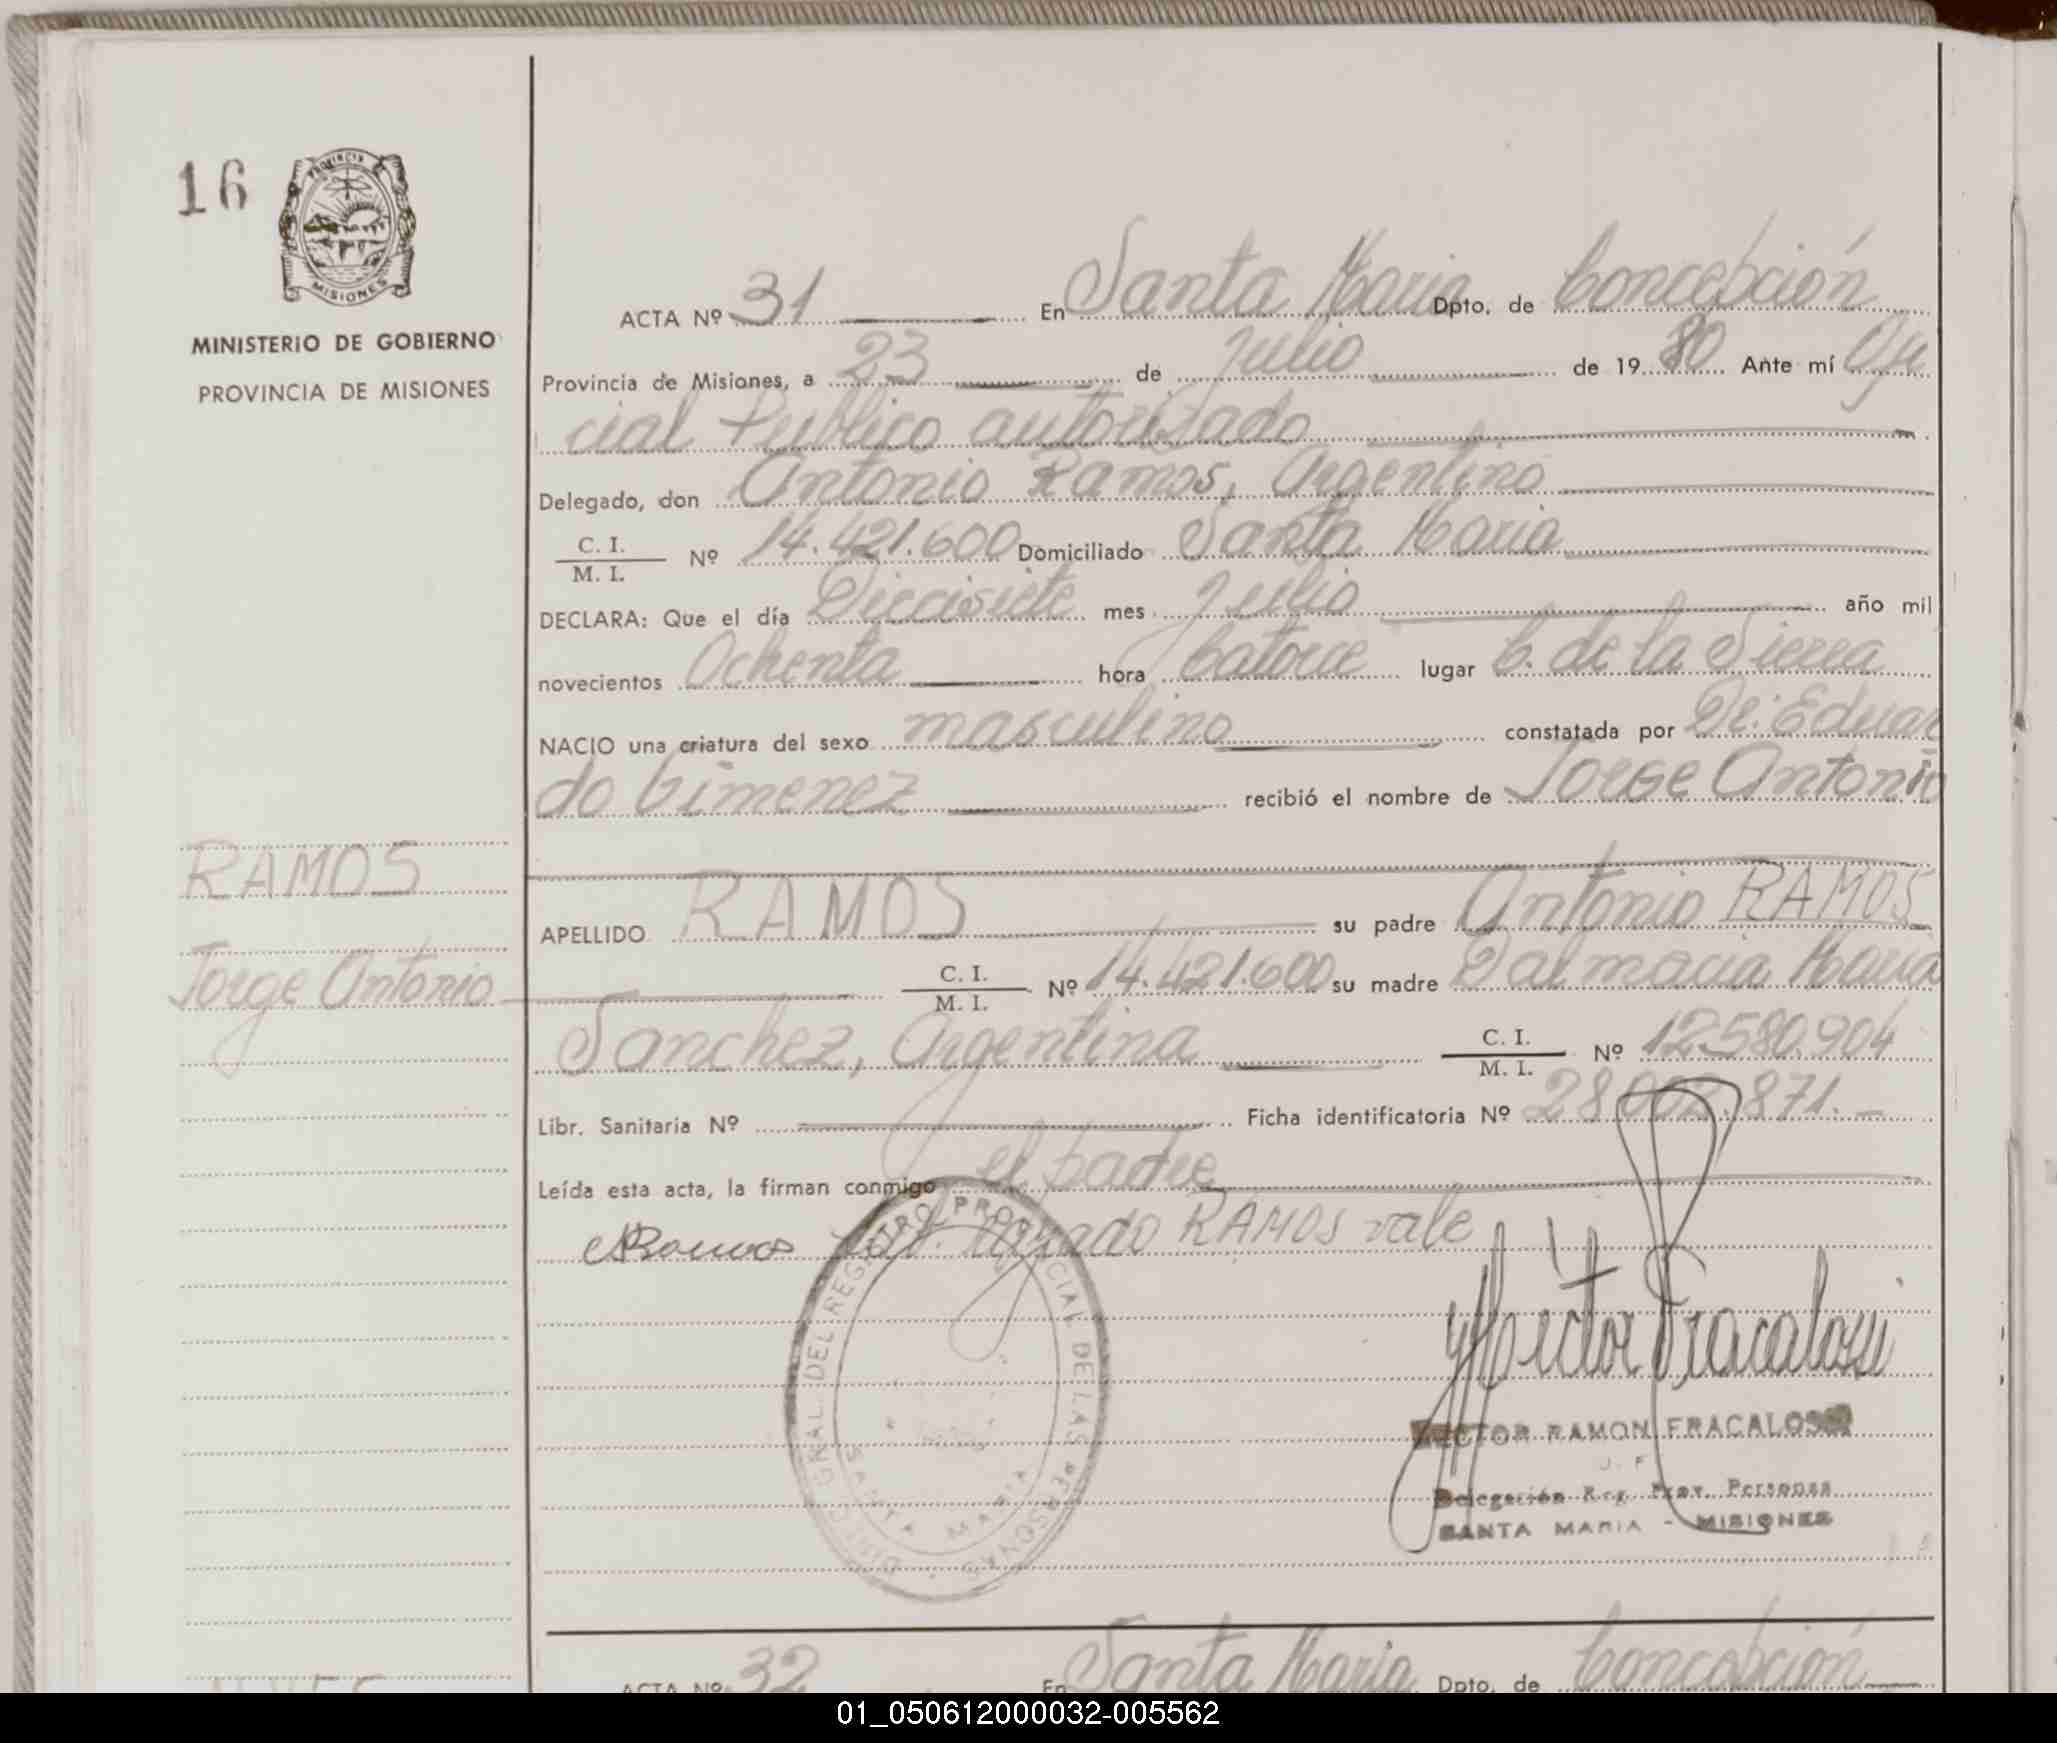 16
PROVINCIA
MISIONES
MINISTERIO DE GOBIERNO
PROVINCIA DE MISIONES
ACTA Nº 31 En Santa Maria Dpto. de Concepción
Provincia de Misiones, a 23 de Julio de 19 80 Ante mí Ofi
cial Publico autorizado
Delegado, don Antonio Ramos, Argentino
C. I.
M. I. Nº 14.421.600 Domiciliado Santa Maria
DECLARA: Que el día Diecisiete mes Julio año mil
novecientos Ochenta hora Catorce lugar C. de la Sierra
NACIO una criatura del sexo masculino constatada por Dr: Eduar
do Gimenez recibió el nombre de Jorge Antonio
RAMOS
APELLIDO RAMOS su padre Antonio RAMOS
Jorge Antonio
C. I.
M. I. Nº 14.421.600 su madre Dalmacia Maria
Sanchez, Argentina C. I.
M. I. Nº 12.580.904
Libr. Sanitaria Nº Ficha identificatoria Nº 28.002.871.-
Leída esta acta, la firman conmigo el padre
ARamos RAMOS vale
DIREC. GNAL. DEL REGISTRO PROVINCIAL DE LAS PERSONAS
SANTA MARIA
Hector Fracalossi
HECTOR RAMON FRACALOSSI
J. F
Delegación Reg. Prov. Personas
SANTA MARIA - MISIONES
ACTA Nº 32 En Santa Maria Dpto. de Concepción
01_050612000032-005562